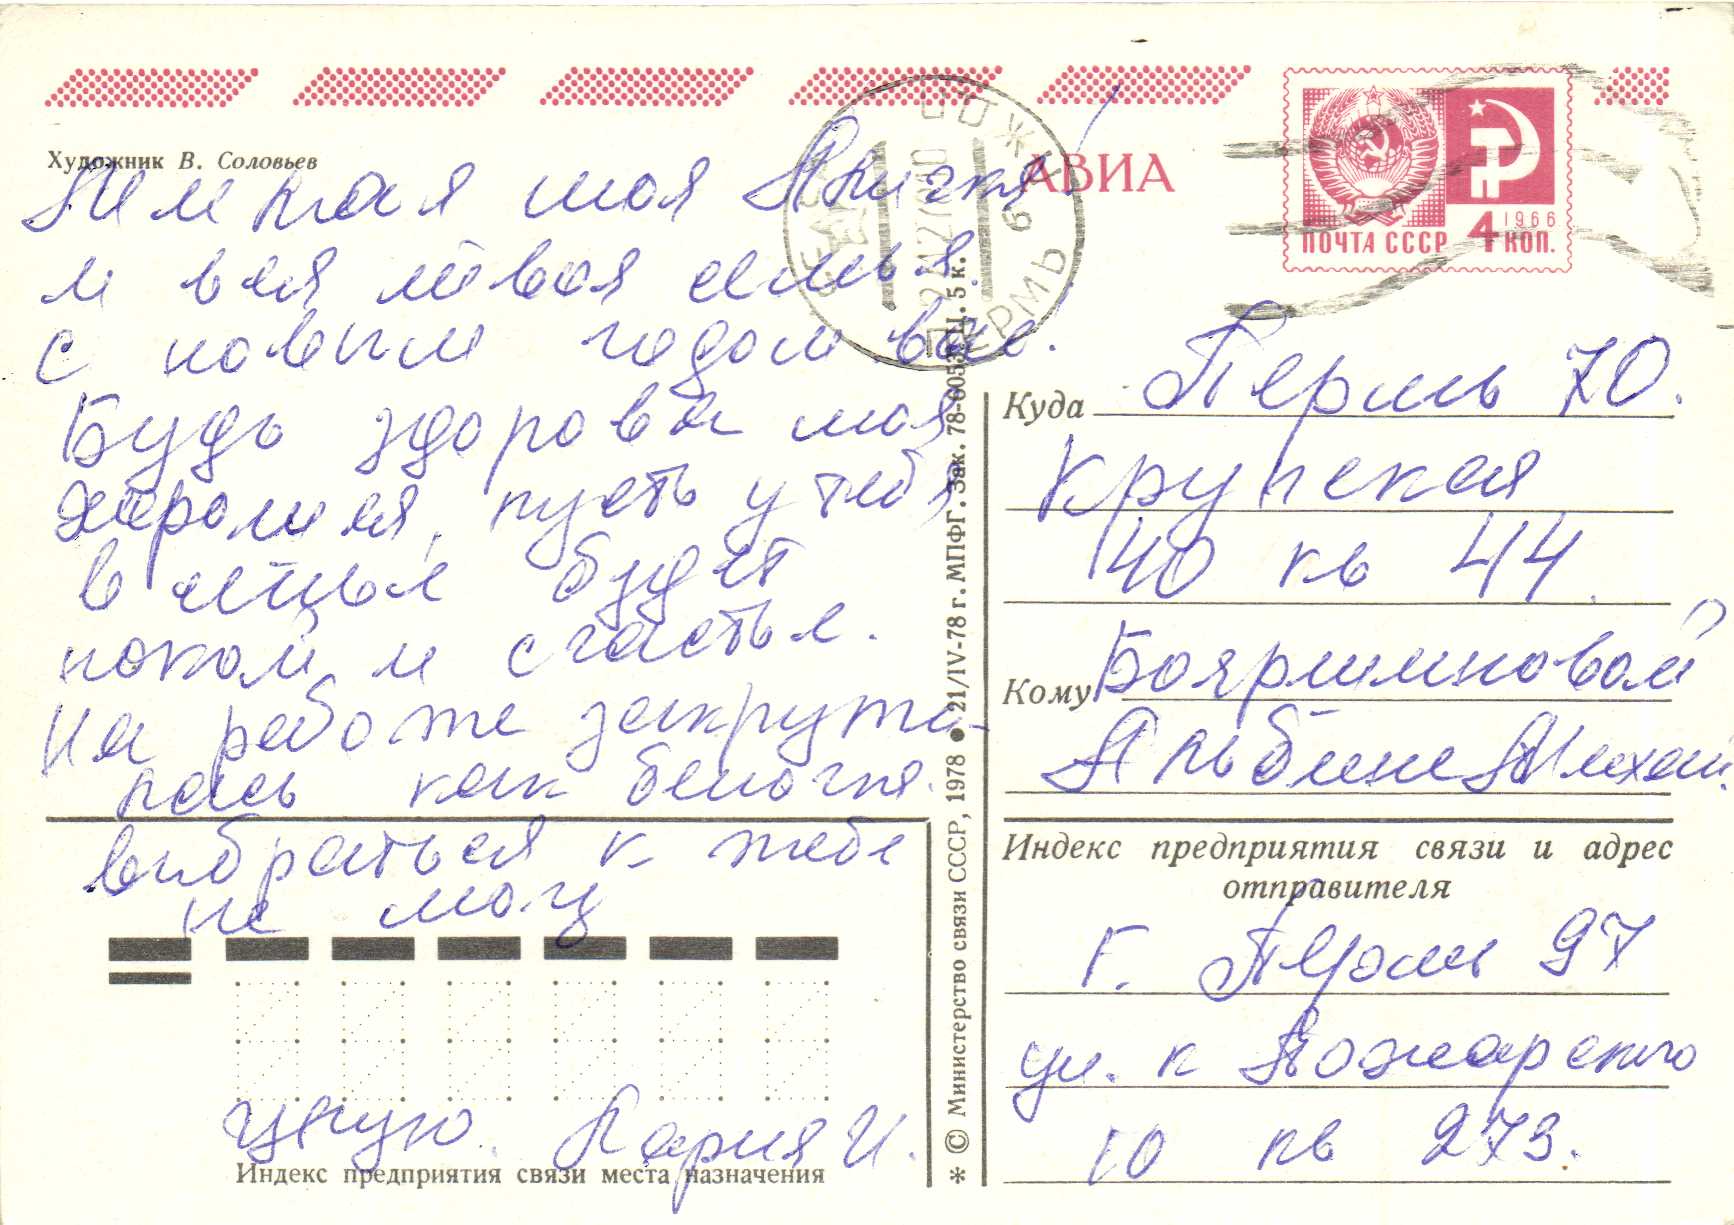 АВИА
Художник В. Соловьев
ПОЧТА СССР 4 КОП.
1966
ПЕРМЬ
Милая моя Аличка
и вся твоя семья.
с новым годом вас!
Будь здорова моя
хорошая, пусть у тебя
в семье будет
покой и счастье.
На работе закружи-
лась как белочка.
выбраться к тебе
не могу
целую. Лария И.
Индекс предприятия связи места назначения
* © Министерство связи СССР, 1978 ● 21/IV-78 г. МПФГ. Зак. 78-6053. Ц. 5 к.
Куда Пермь 70.
Крупская
40 кв 44.
Кому Бояршиновой
Альбине Михай.
Индекс предприятия связи и адрес
отправителя
г. Пермь 97
ул. к Пожарского
10 кв 273.